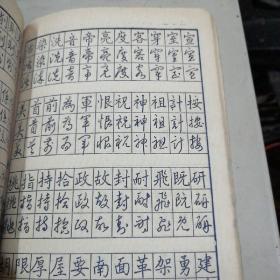 宣室穿客度亮帝音洗染
宣室穿客度亮帝音洗染
宣室穿客度亮帝音洗染
按計祖神祝恨軍為前首
按計祖神祝恨軍為前首
按計祖神祝恨軍為前首
研既飛耐封故政拾持指
研既飛耐封故政拾持指
研既飛耐封故政拾持指
建勇架革面南要屋厚限